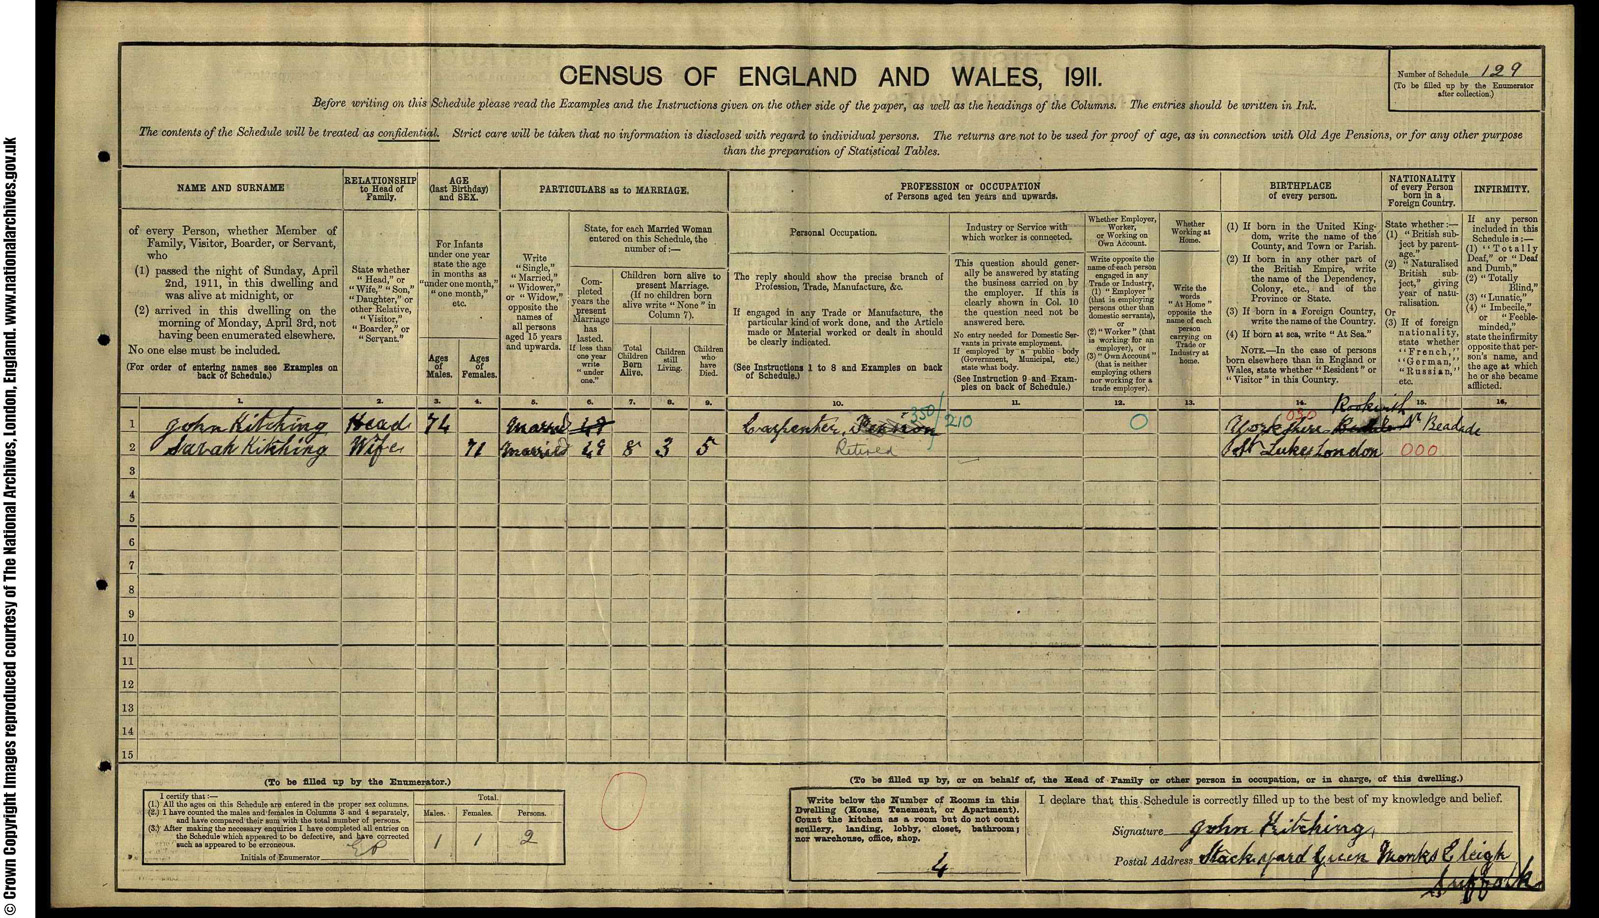 © Crown Copyright Images reproduced courtesy of The National Archives, London, England. www.nationalarchives.gov.uk
CENSUS OF ENGLAND AND WALES, 1911.
Number of Schedule 129
(To be filled up by the Enumerator after collection.)
Before writing on this Schedule please read the Examples and the Instructions given on the other side of the paper, as well as the headings of the Columns. The entries should be written in Ink.
The contents of the Schedule will be treated as confidential. Strict care will be taken that no information is disclosed with regard to individual persons. The returns are not to be used for proof of age, as in connection with Old Age Pensions, or for any other purpose
than the preparation of Statistical Tables.
NAME AND SURNAME
of every Person, whether Member of
Family, Visitor, Boarder, or Servant,
who
(1) passed the night of Sunday, April
2nd, 1911, in this dwelling and
was alive at midnight, or
(2) arrived in this dwelling on the
morning of Monday, April 3rd, not
having been enumerated elsewhere.
No one else must be included.
(For order of entering names see Examples on
back of Schedule.)
RELATIONSHIP
to Head of
Family.
State whether
"Head," or
"Wife," "Son,"
"Daughter," or
other Relative,
"Visitor,"
"Boarder," or
"Servant."
AGE
(last Birthday)
and SEX.
For Infants
under one year
state the age
in months as
"under one month,"
"one month,"
etc.
Ages of Males.
Ages of Females.
PARTICULARS as to MARRIAGE.
Write
"Single,"
"Married,"
"Widower,"
or "Widow,"
opposite the
names of
all persons
aged 15 years
and upwards.
State, for each Married Woman
entered on this Schedule, the
number of:—
Completed
years the
present
Marriage
has
lasted.
If less than
one year
write
"under
one."
Children born alive to
present Marriage.
(If no children born
alive write "None" in
Column 7).
Total Children Born Alive.
Children still Living.
Children who have Died.
PROFESSION or OCCUPATION
of Persons aged ten years and upwards.
Personal Occupation.
The reply should show the precise branch of
Profession, Trade, Manufacture, &c.
If engaged in any Trade or Manufacture, the
particular kind of work done, and the Article
made or Material worked or dealt in should
be clearly indicated.
(See Instructions 1 to 8 and Examples on back
of Schedule.)
Industry or Service with
which worker is connected.
This question should generally
be answered by stating
the business carried on by
the employer. If this is
clearly shown in Col. 10
the question need not be
answered here.
No entry needed for Domestic Servants
in private employment.
If employed by a public body
(Government, Municipal, etc.)
state what body.
(See Instruction 9 and Examples
on back of Schedule.)
Whether Employer,
Worker,
or Working on
Own Account.
Write opposite the
name of each person
engaged in any
Trade or Industry,
(1) "Employer"
(that is employing
persons other than
domestic servants),
or
(2) "Worker" (that
is working for an
employer), or
(3) "Own Account"
(that is neither
employing others
nor working for a
trade employer).
Whether
Working at
Home.
Write the
words
"At Home"
opposite the
name of each
person
carrying on
Trade or
Industry at
home.
BIRTHPLACE
of every person.
(1) If born in the United Kingdom,
write the name of the
County, and Town or Parish.
(2) If born in any other part of
the British Empire, write
the name of the Dependency,
Colony, etc., and of the
Province or State.
(3) If born in a Foreign Country,
write the name of the Country.
(4) If born at sea, write "At Sea."
NOTE.—In the case of persons
born elsewhere than in England or
Wales, state whether "Resident" or
"Visitor" in this Country.
NATIONALITY
of every Person
born in a
Foreign Country.
State whether:—
(1) "British subject
by parentage."
(2) "Naturalised
British subject,"
giving
year of naturalisation.
Or
(3) If of foreign
nationality,
state whether
"French,"
"German,"
"Russian,"
etc.
INFIRMITY.
If any person
included in this
Schedule is:—
(1) "Totally
Deaf," or "Deaf
and Dumb,"
(2) "Totally
Blind,"
(3) "Lunatic,"
(4) "Imbecile,"
or "Feeble-
minded,"
state the infirmity
opposite that person's
name, and
the age at which
he or she became
afflicted.
1. 2. 3. 4. 5. 6. 7. 8. 9. 10. 11. 12. 13. 14. 15. 16.
1 John Kitching Head 74 Married 49 Carpenter, Pension 350/ 210 0 Yorkshire 050
2 Sarah Kitching Wife 71 Married 49 8 3 5 Retired St Lukes London 000
3
4
5
6
7
8
9
10
11
12
13
14
15
(To be filled up by the Enumerator.)
I certify that:—
(1.) All the ages on this Schedule are entered in the proper sex columns.
(2.) I have counted the males and females in Columns 3 and 4 separately,
and have compared their sum with the total number of persons.
(3.) After making the necessary enquiries I have completed all entries on
the Schedule which appeared to be defective, and have corrected
such as appeared to be erroneous.
Initials of Enumerator
Total.
Males. Females. Persons.
1 1 2
0
(To be filled up by, or on behalf of, the Head of Family or other person in occupation, or in charge, of this dwelling.)
Write below the Number of Rooms in this
Dwelling (House, Tenement, or Apartment).
Count the kitchen as a room but do not count
scullery, landing, lobby, closet, bathroom;
nor warehouse, office, shop.
4
I declare that this Schedule is correctly filled up to the best of my knowledge and belief.
Signature John Kitching
Postal Address Stackyard Green Monks Eleigh
Suffolk